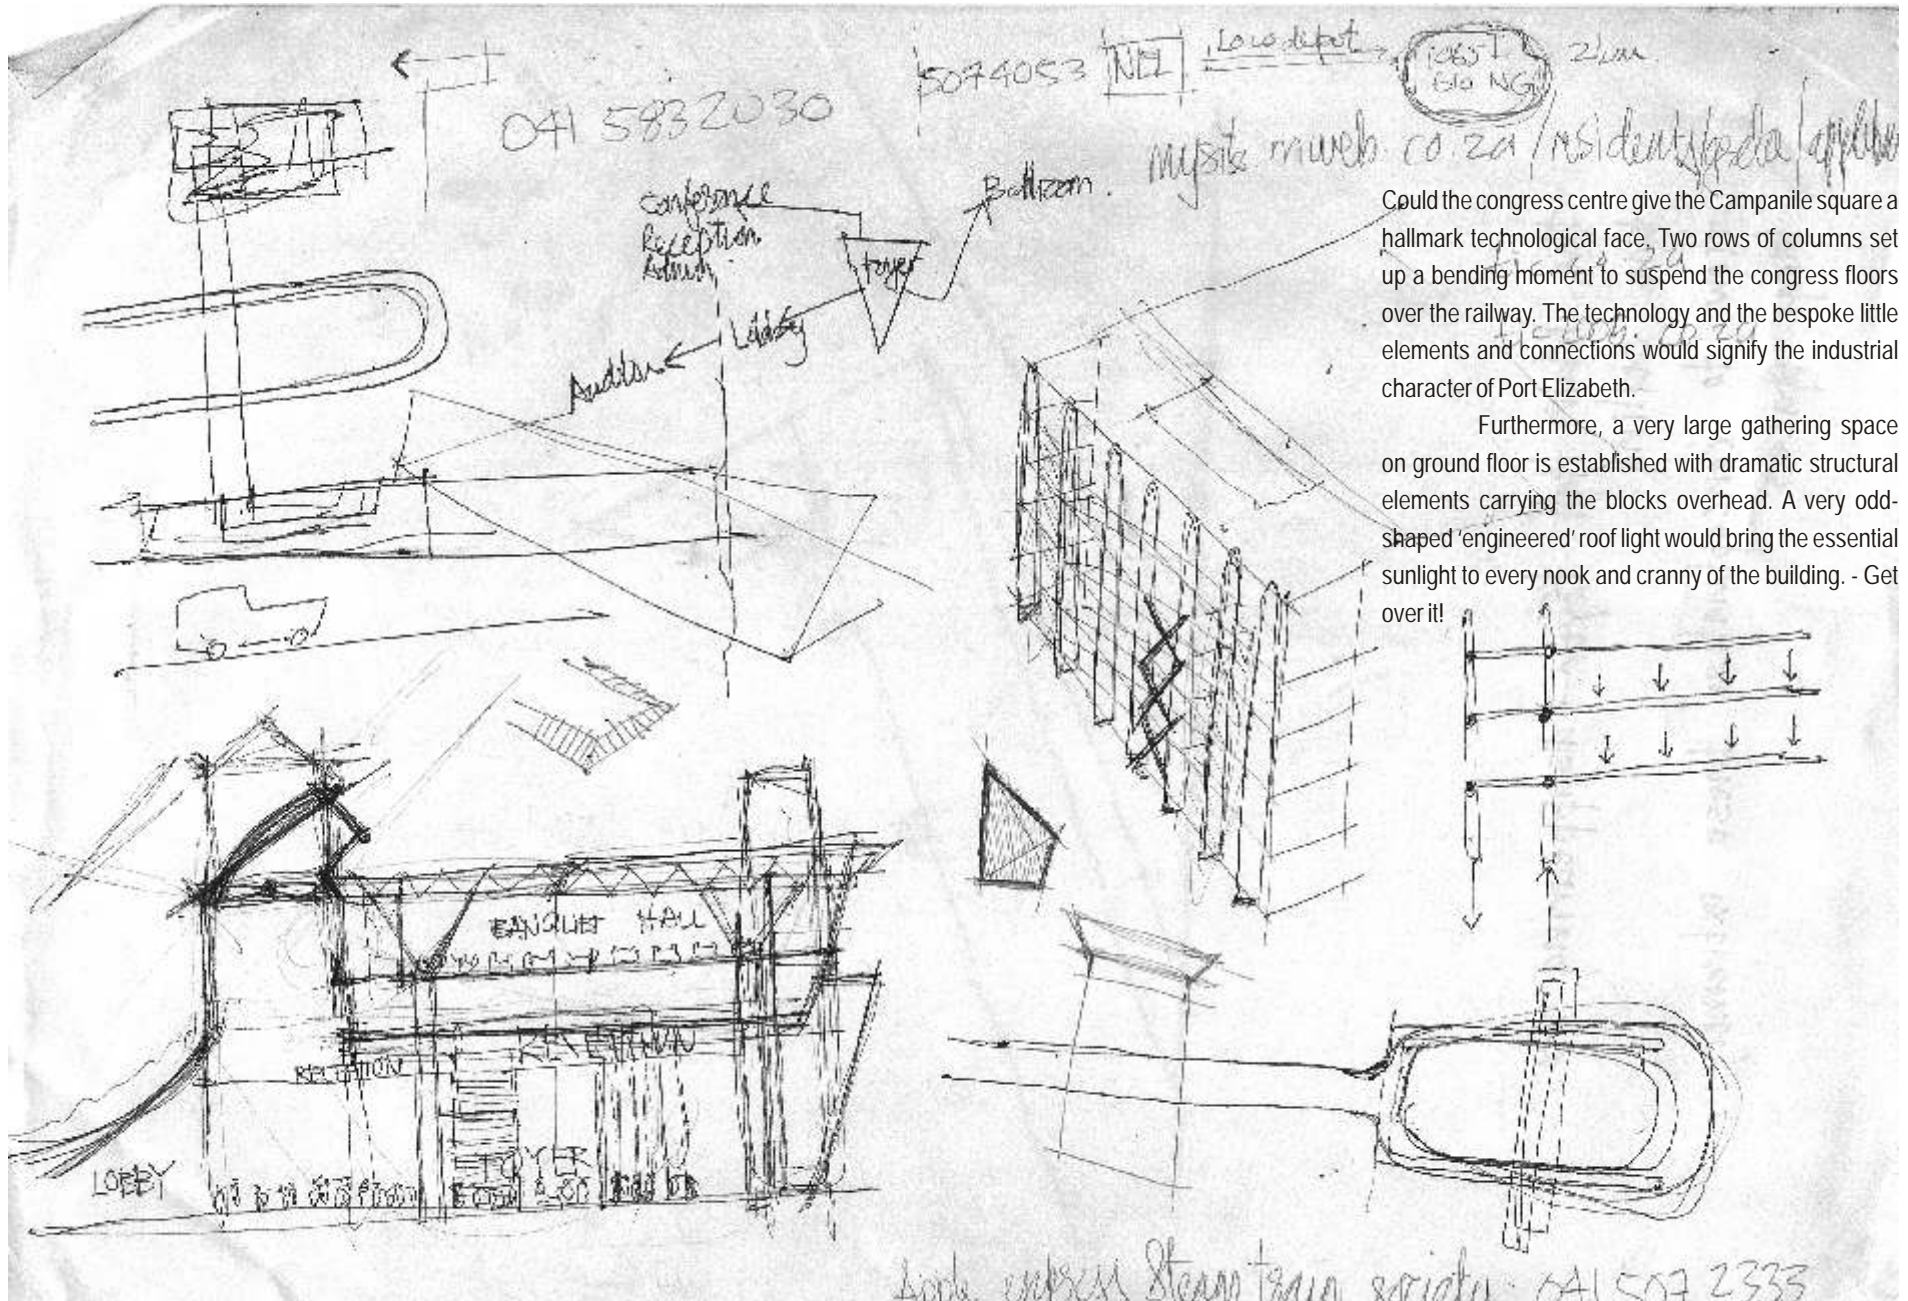 5074053 NEL Loco depot
041 5832030
mysite.mweb.co.za/
Conference
Reception
Admin
Foyer
Ballroom
Lobby
Could the congress centre give the Campanile square a
hallmark technological face. Two rows of columns set
up a bending moment to suspend the congress floors
over the railway. The technology and the bespoke little
elements and connections would signify the industrial
character of Port Elizabeth.
Furthermore, a very large gathering space
on ground floor is established with dramatic structural
elements carrying the blocks overhead. A very odd-
shaped 'engineered' roof light would bring the essential
sunlight to every nook and cranny of the building. - Get
over it!
BANQUET HALL
RECEPTION
LOBBY
FOYER
Apple express Steam train society 041 507 2333